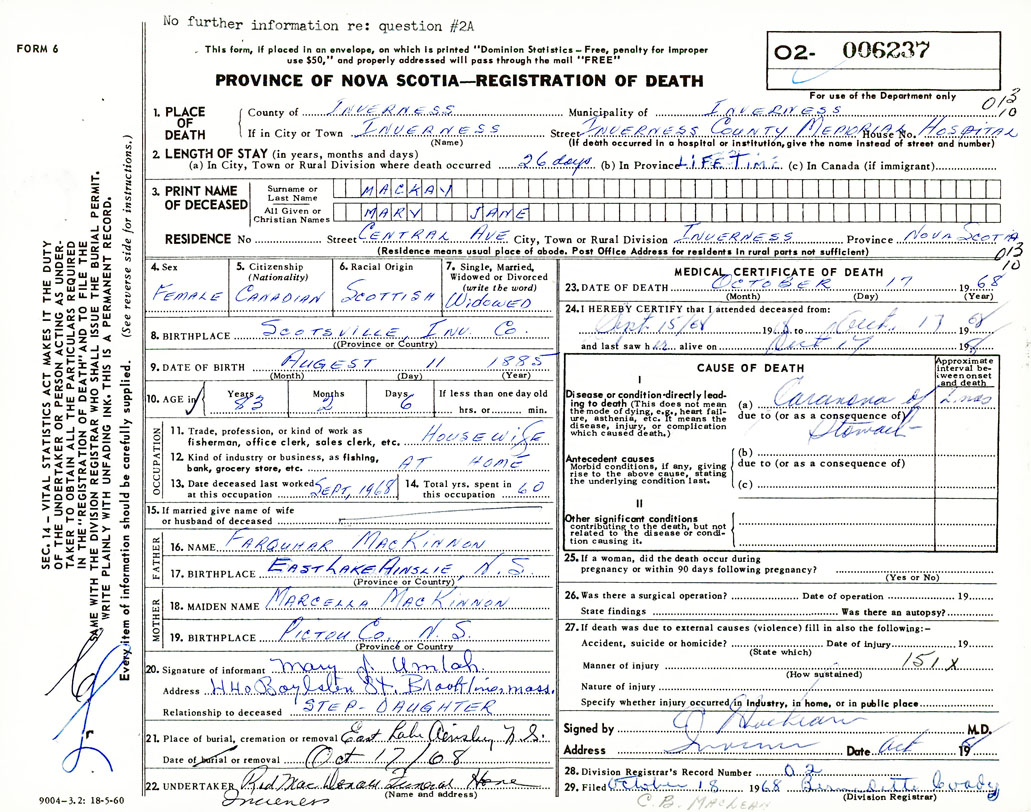 No further information re: question #2A
FORM 6
This form, if placed in an envelope, on which is printed "Dominion Statistics – Free, penalty for improper
use $50," and properly addressed will pass through the mail "FREE"
O2- 006237
PROVINCE OF NOVA SCOTIA—REGISTRATION OF DEATH
For use of the Department only
013
10
1. PLACE OF DEATH
County of INVERNESS Municipality of INVERNESS
If in City or Town INVERNESS Street INVERNESS COUNTY MEMORIAL House No. HOSPITAL
(Name) (If death occurred in a hospital or institution, give the name instead of street and number)
2. LENGTH OF STAY (in years, months and days)
(a) In City, Town or Rural Division where death occurred 26 days (b) In Province LIFETIME (c) In Canada (if immigrant)
3. PRINT NAME OF DECEASED
Surname or Last Name MACKAY
All Given or Christian Names MARY JANE
RESIDENCE No Street CENTRAL AVE City, Town or Rural Division INVERNESS Province NOVA SCOTIA
(Residence means usual place of above. Post Office Address for residents in rural parts not sufficient)
013
10
4. Sex
FEMALE
5. Citizenship
(Nationality)
CANADIAN
6. Racial Origin
SCOTTISH
7. Single, Married,
Widowed or Divorced
(write the word)
WIDOWED
8. BIRTHPLACE SCOTSVILLE, INV. CO.
((Province or Country)
9. DATE OF BIRTH AUGEST 11 1885
(Month) (Day) (Year)
10. AGE in Years 83 Months 2 Days 6 If less than one day old
hrs. or min.
OCCUPATION
11. Trade, profession, or kind of work as
fisherman, office clerk, sales clerk, etc. HOUSEWIFE
12. Kind of industry or business, as fishing,
bank, grocery store, etc. AT HOME
13. Date deceased last worked
at this occupation SEPT, 1968
14. Total yrs. spent in
this occupation 60
15. If married give name of wife
or husband of deceased
FATHER
16. NAME FARQUHAR MACKINNON
17. BIRTHPLACE EAST LAKE AINSLIE, N.S.
(Province or Country)
MOTHER
18. MAIDEN NAME MARCELLA MACKINNON
19. BIRTHPLACE PICTOU CO., N.S.
(Province or Country)
20. Signature of informant Mary J. Umlah
Address 440 Boylston St. Brookline, Mass.
Relationship to deceased STEP-DAUGHTER
21. Place of burial, cremation or removal East Lake Ainsley N.S.
Date of burial or removal Oct 17/68
22. UNDERTAKER Rod MacDonald Funeral Home
(Name and address)
Inverness
9004-3.2: 18-5-60
MEDICAL CERTIFICATE OF DEATH
23. DATE OF DEATH OCTOBER 17 1968
(Month) (Day) (Year)
24. I HEREBY CERTIFY that I attended deceased from:
Sept. 15/68 1968 to Oct. 17 1968
and last saw her alive on Oct 17 1968
CAUSE OF DEATH
Approximate
interval be-
tween onset
and death
I
Disease or condition directly lead-
ing to death (This does not mean
the mode of dying, e.g., heart fail-
ure, asthenia, etc. It means the
disease, injury, or complication
which caused death.)
(a) Carcinoma of
due to (or as a consequence of)
Stomach
2 mos
Antecedent causes
Morbid conditions, if any, giving
rise to the above cause, stating
the underlying condition last.
(b)
due to (or as a consequence of)
(c)
II
Other significant conditions
contributing to the death, but not
related to the disease or condi-
tion causing it.
25. If a woman, did the death occur during
pregnancy or within 90 days following pregnancy?
(Yes or No)
26. Was there a surgical operation? Date of operation 19
State findings Was there an autopsy?
27. If death was due to external causes (violence) fill in also the following:–
Accident, suicide or homicide? Date of injury 19
(State which)
Manner of injury 151X
(How sustained)
Nature of injury
Specify whether injury occurred in Industry, in home, or in public place
Signed by M.D.
Address Inverness Date Oct 1968
28. Division Registrar's Record Number 02
29. Filed October 18 1968 Bernadette Coady
(Division Registrar)
C.B. MACLEAN
SEC. 14 – VITAL STATISTICS ACT MAKES IT THE DUTY
OF THE UNDERTAKER OR PERSON ACTING AS UNDER-
TAKER TO OBTAIN ALL THE PARTICULARS REQUIRED
IN THE "REGISTRATION OF DEATH" AND TO FILE THE
SAME WITH THE DIVISION REGISTRAR WHO SHALL ISSUE THE BURIAL PERMIT.
WRITE PLAINLY WITH UNFADING INK. THIS IS A PERMANENT RECORD.
Every item of information should be carefully supplied. (See reverse side for instructions.)